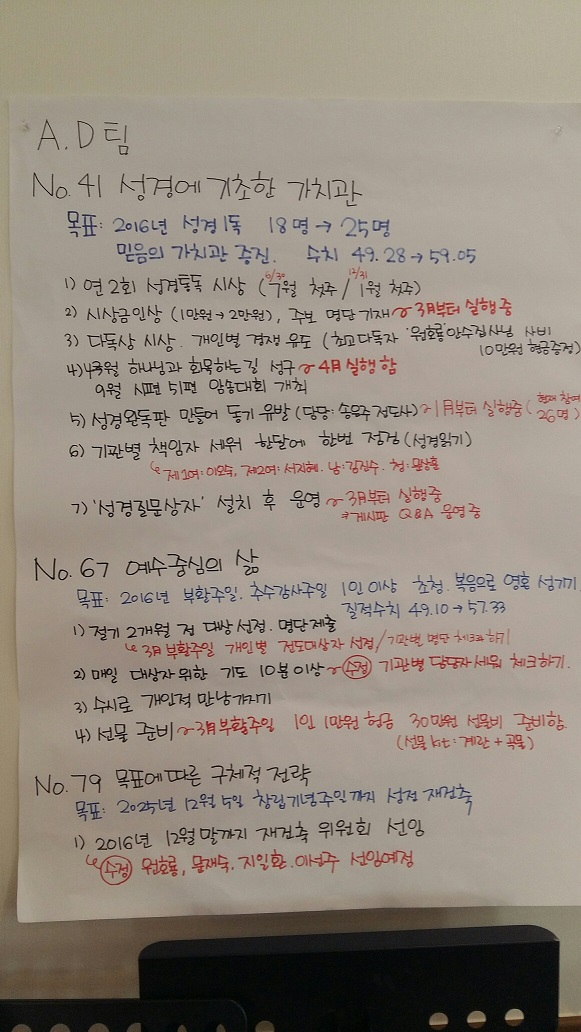 A.D팀
No. 41 성경에 기초한 가치관
목표: 2016년 성경1독 18명→25명
믿음의 가치관 증진. 수치 49.28→59.05
6/30 12/31
1) 연 2회 성경통독 시상 (7월 첫주/1월 첫주)
2) 시상금인상 (1만원→2만원), 주보 명단기재~3月부터 실행中
3) 다독상 시상. 개인별 경쟁 유도 (최고다독자 '원호룡'안수집사님 사비
10만원 헌금증정)
4) 하나님과 화목하는 길 성구~4月 실행함
9월 시편 51편 암송대회 개최
5) 성경완독판 만들어 동기 유발 (담당: 송우주 전도사)~1月부터 실행中 (현재 참여
26명)
6) 기관별 책임자 세워 한달에 한번 점검 (성경읽기)
제1여: 제2여: 서지혜. 남: 김진수. 청:
7) '성경질문상자' 설치 후 운영~3月부터 실행中
*게시판 Q&A 운영中
No. 67 예수중심의 삶
목표: 2016년 부활주일. 추수감사주일 1인 이상 초청. 복음으로 영혼 섬기기
질적수치 49.10→57.33
1) 절기 2개월 전 대상선정. 명단제출
3月 부활주일 개인별 전도대상자 선정/기관별 명단 체크하기
2) 매일 대상자위한 기도 10분이상~수정 기관별 담당자세워 체크하기.
3) 수시로 개인적 만남가지기
4) 선물 준비~3月부활주일 1인 1만원 헌금 30만원 선물비 준비함
(선물 kit: 계란+곡물)
No. 79 목표에 따른 구체적 전략
목표: 2025년 12월 5일 창립기념주일까지 성전 재건축
1) 2016년 12월말까지 재건축 위원회 선임
수정 원호룡, 문재숙. 지일환. 이성주 선임예정